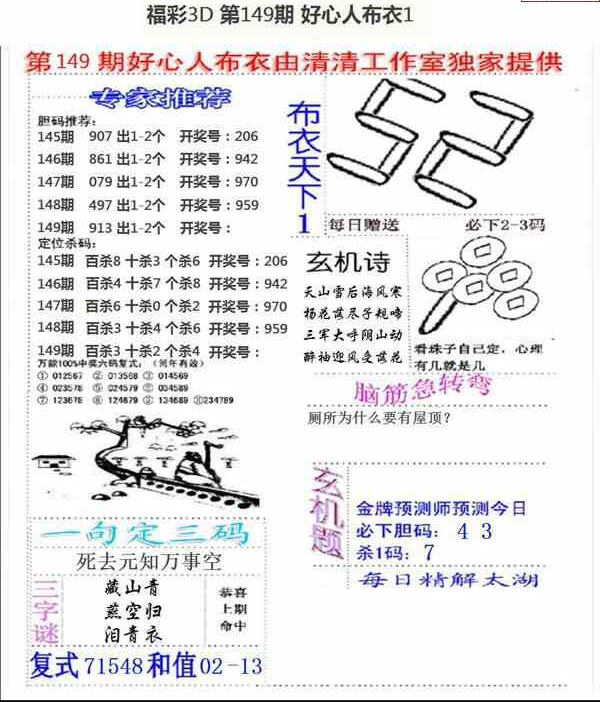 福彩3D 第149期 好心人布衣1
第149 期好心人布衣由清清工作室独家提供
专家推荐
胆码推荐：
145期 907 出1-2个 开奖号：206
146期 861 出1-2个 开奖号：942
147期 079 出1-2个 开奖号：970
148期 497 出1-2个 开奖号：959
149期 913 出1-2个 开奖号：
定位杀码：
145期 百杀8 十杀3 个杀6 开奖号：206
146期 百杀4 十杀7 个杀8 开奖号：942
147期 百杀6 十杀0 个杀2 开奖号：970
148期 百杀3 十杀4 个杀6 开奖号：959
149期 百杀3 十杀2 个杀4 开奖号：
万能100%中奖六码复式：（常年有效）
① 012567 ② 013568 ③ 014569
④ 023578 ⑤ 024579 ⑥ 034589
⑦ 123678 ⑧ 124679 ⑨ 134689 ⑩234789
一句定三码
死去元知万事空
三字谜
藏山青
燕空归
泪青衣
恭喜
上期
命中
复式71548和值02-13
布衣天下1
52
每日赠送 必下2-3码
玄机诗
天山雪后海风寒
杨花落尽子规啼
三军大呼阴山动
醉袖迎风受落花
看珠子自己定，心理
有几就是几
脑筋急转弯
厕所为什么要有屋顶？
玄机题
金牌预测师预测今日
必下胆码： 4 3
杀1码：7
每日精解太湖